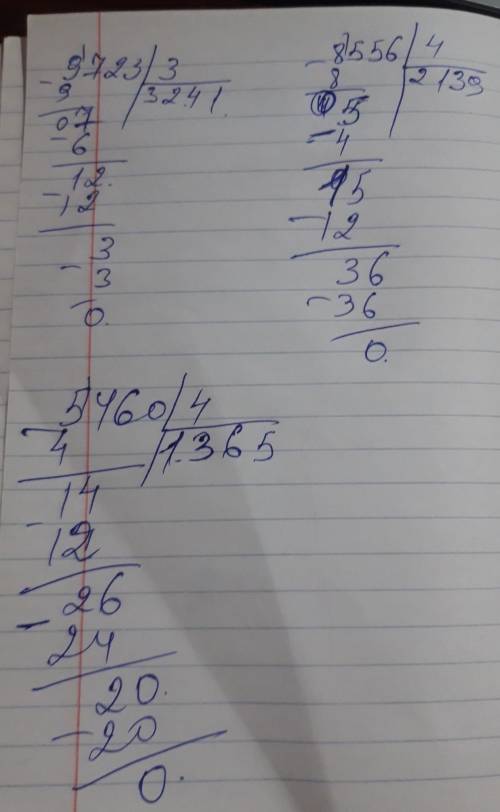 - 9723 | 3
9 3241.
07
- 6
12.
- 12
3
- 3
0.
- 8556 | 4
8 2139
05
- 4
15
- 12
36
- 36
0.
- 5460 | 4
4 1365
14
- 12
26
- 24
20.
- 20
0.